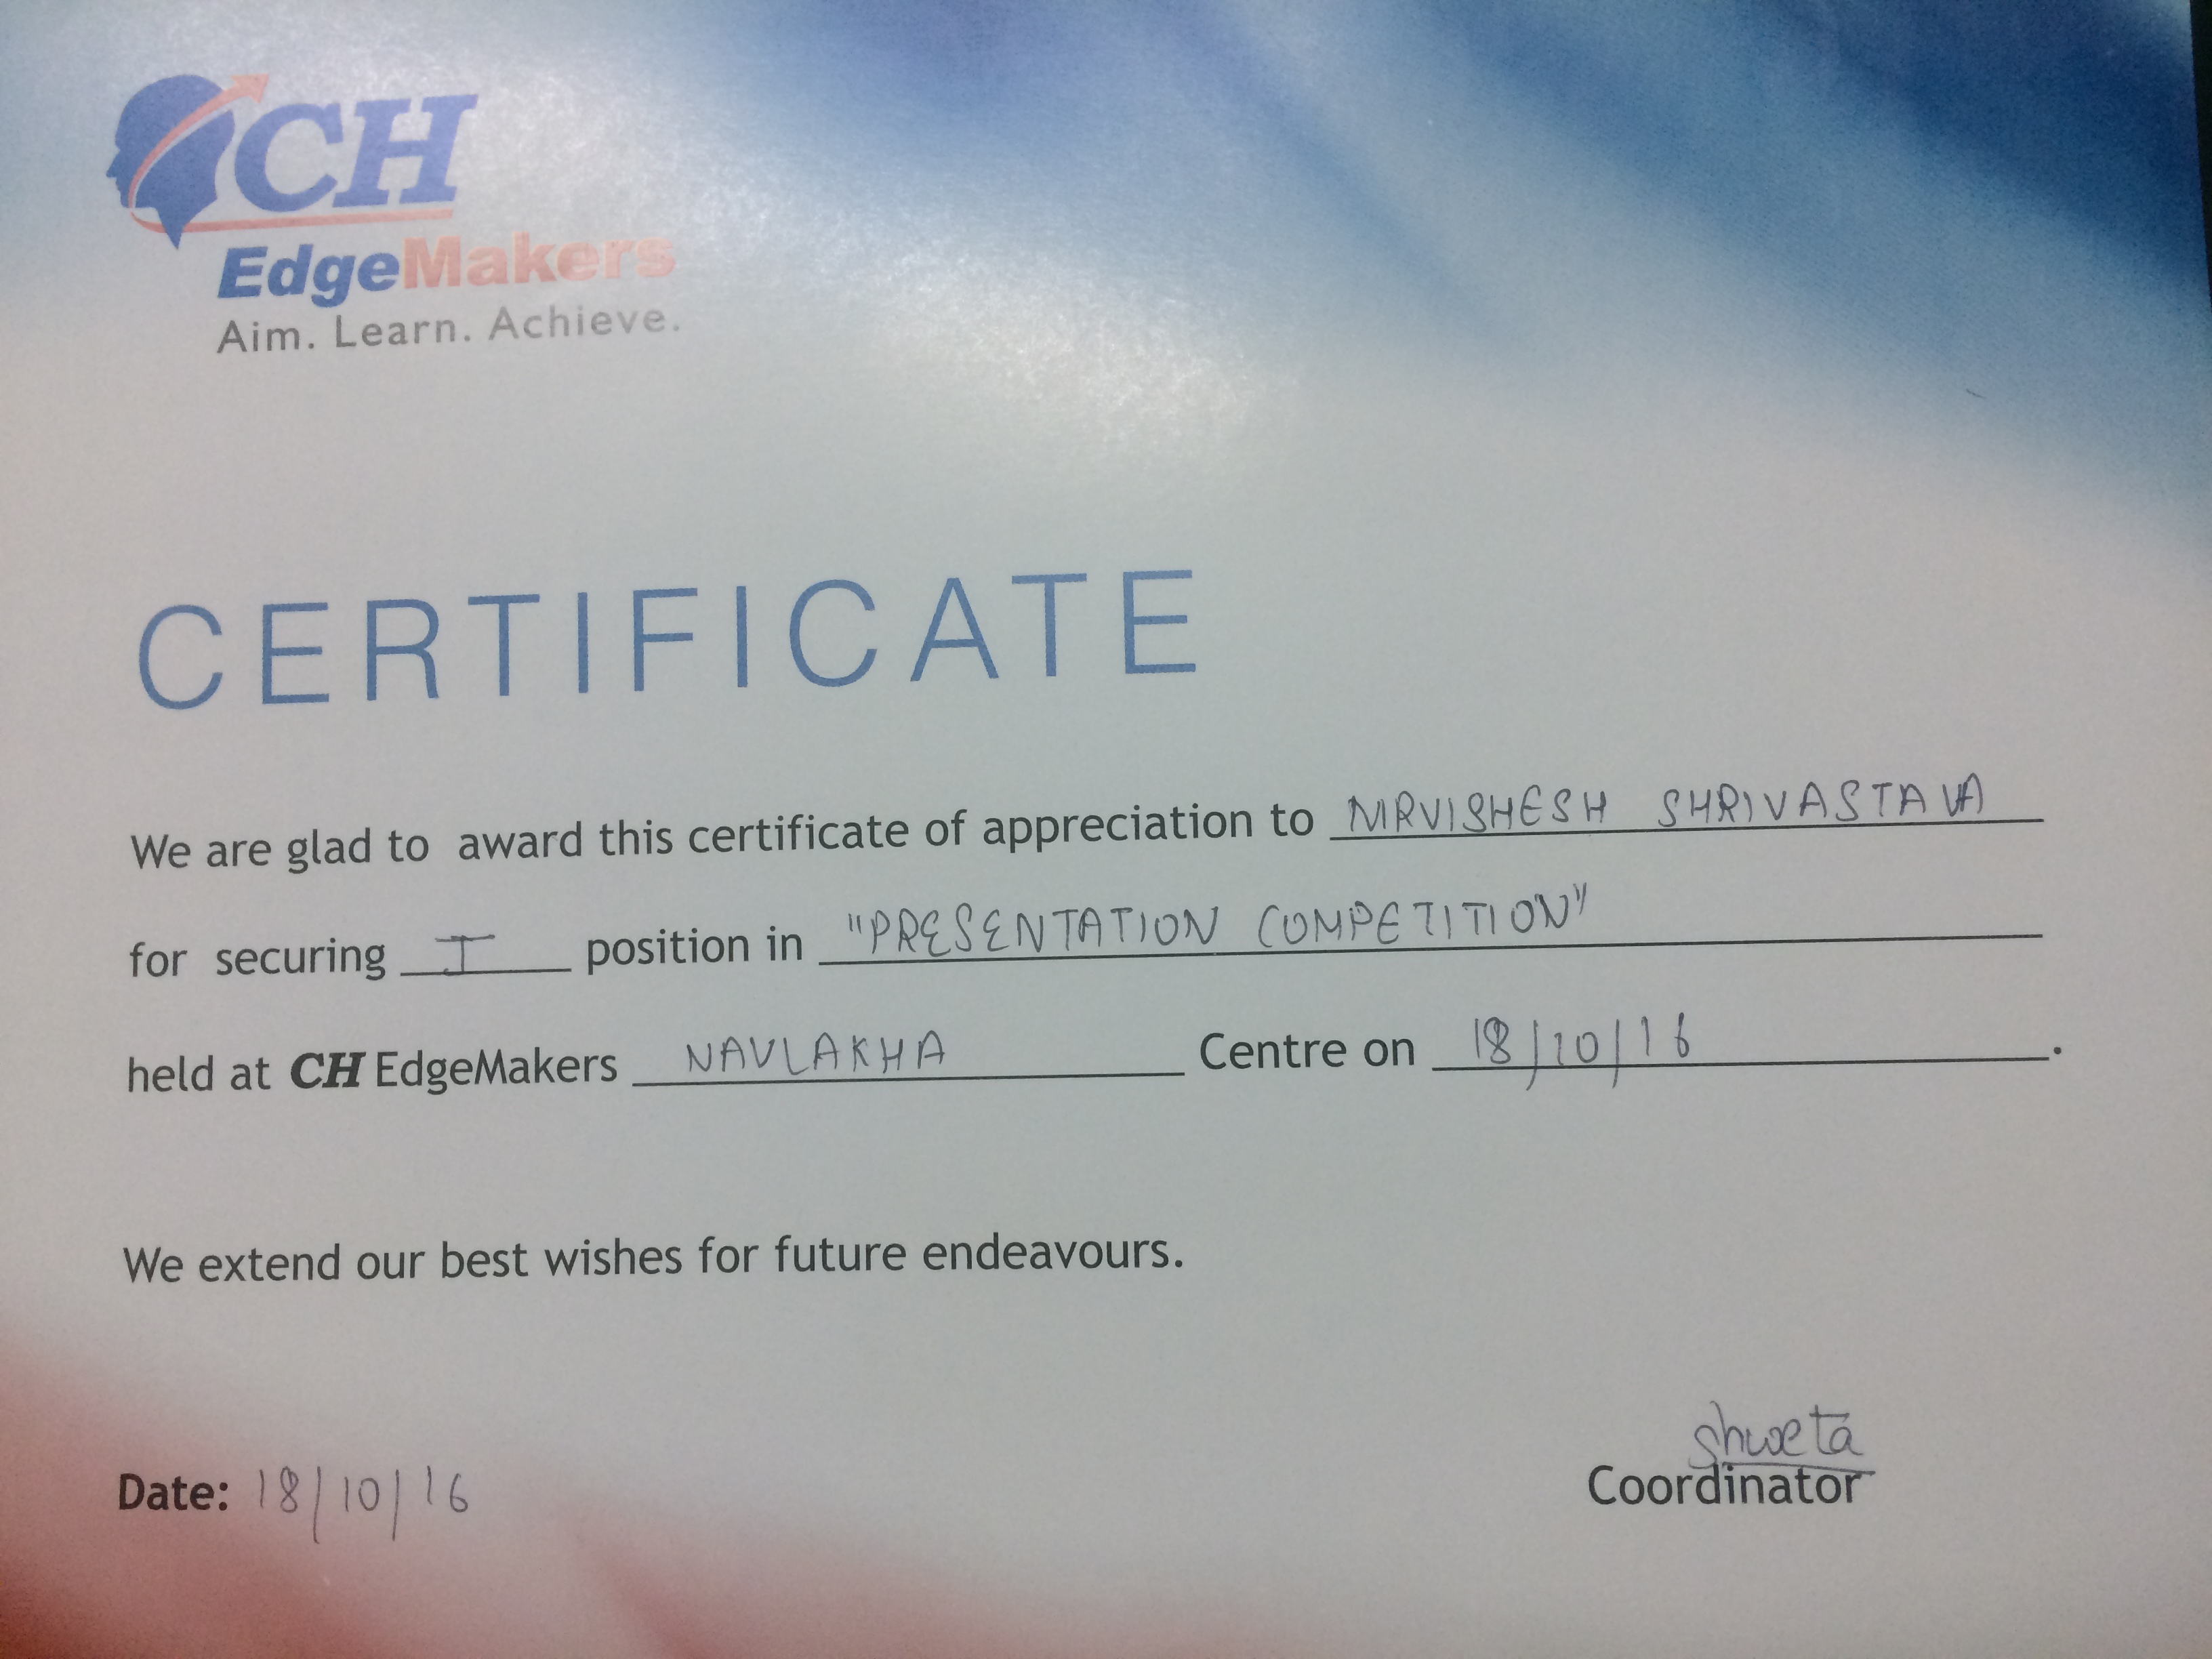 CH
EdgeMakers
Aim. Learn. Achieve.
CERTIFICATE
We are glad to award this certificate of appreciation to NIRVISHESH SHRIVASTAVA
for securing I position in "PRESENTATION COMPETITION"
held at CH EdgeMakers NAVLAKHA Centre on 18/10/16.
We extend our best wishes for future endeavours.
Shweta
Date: 18/10/16 Coordinator